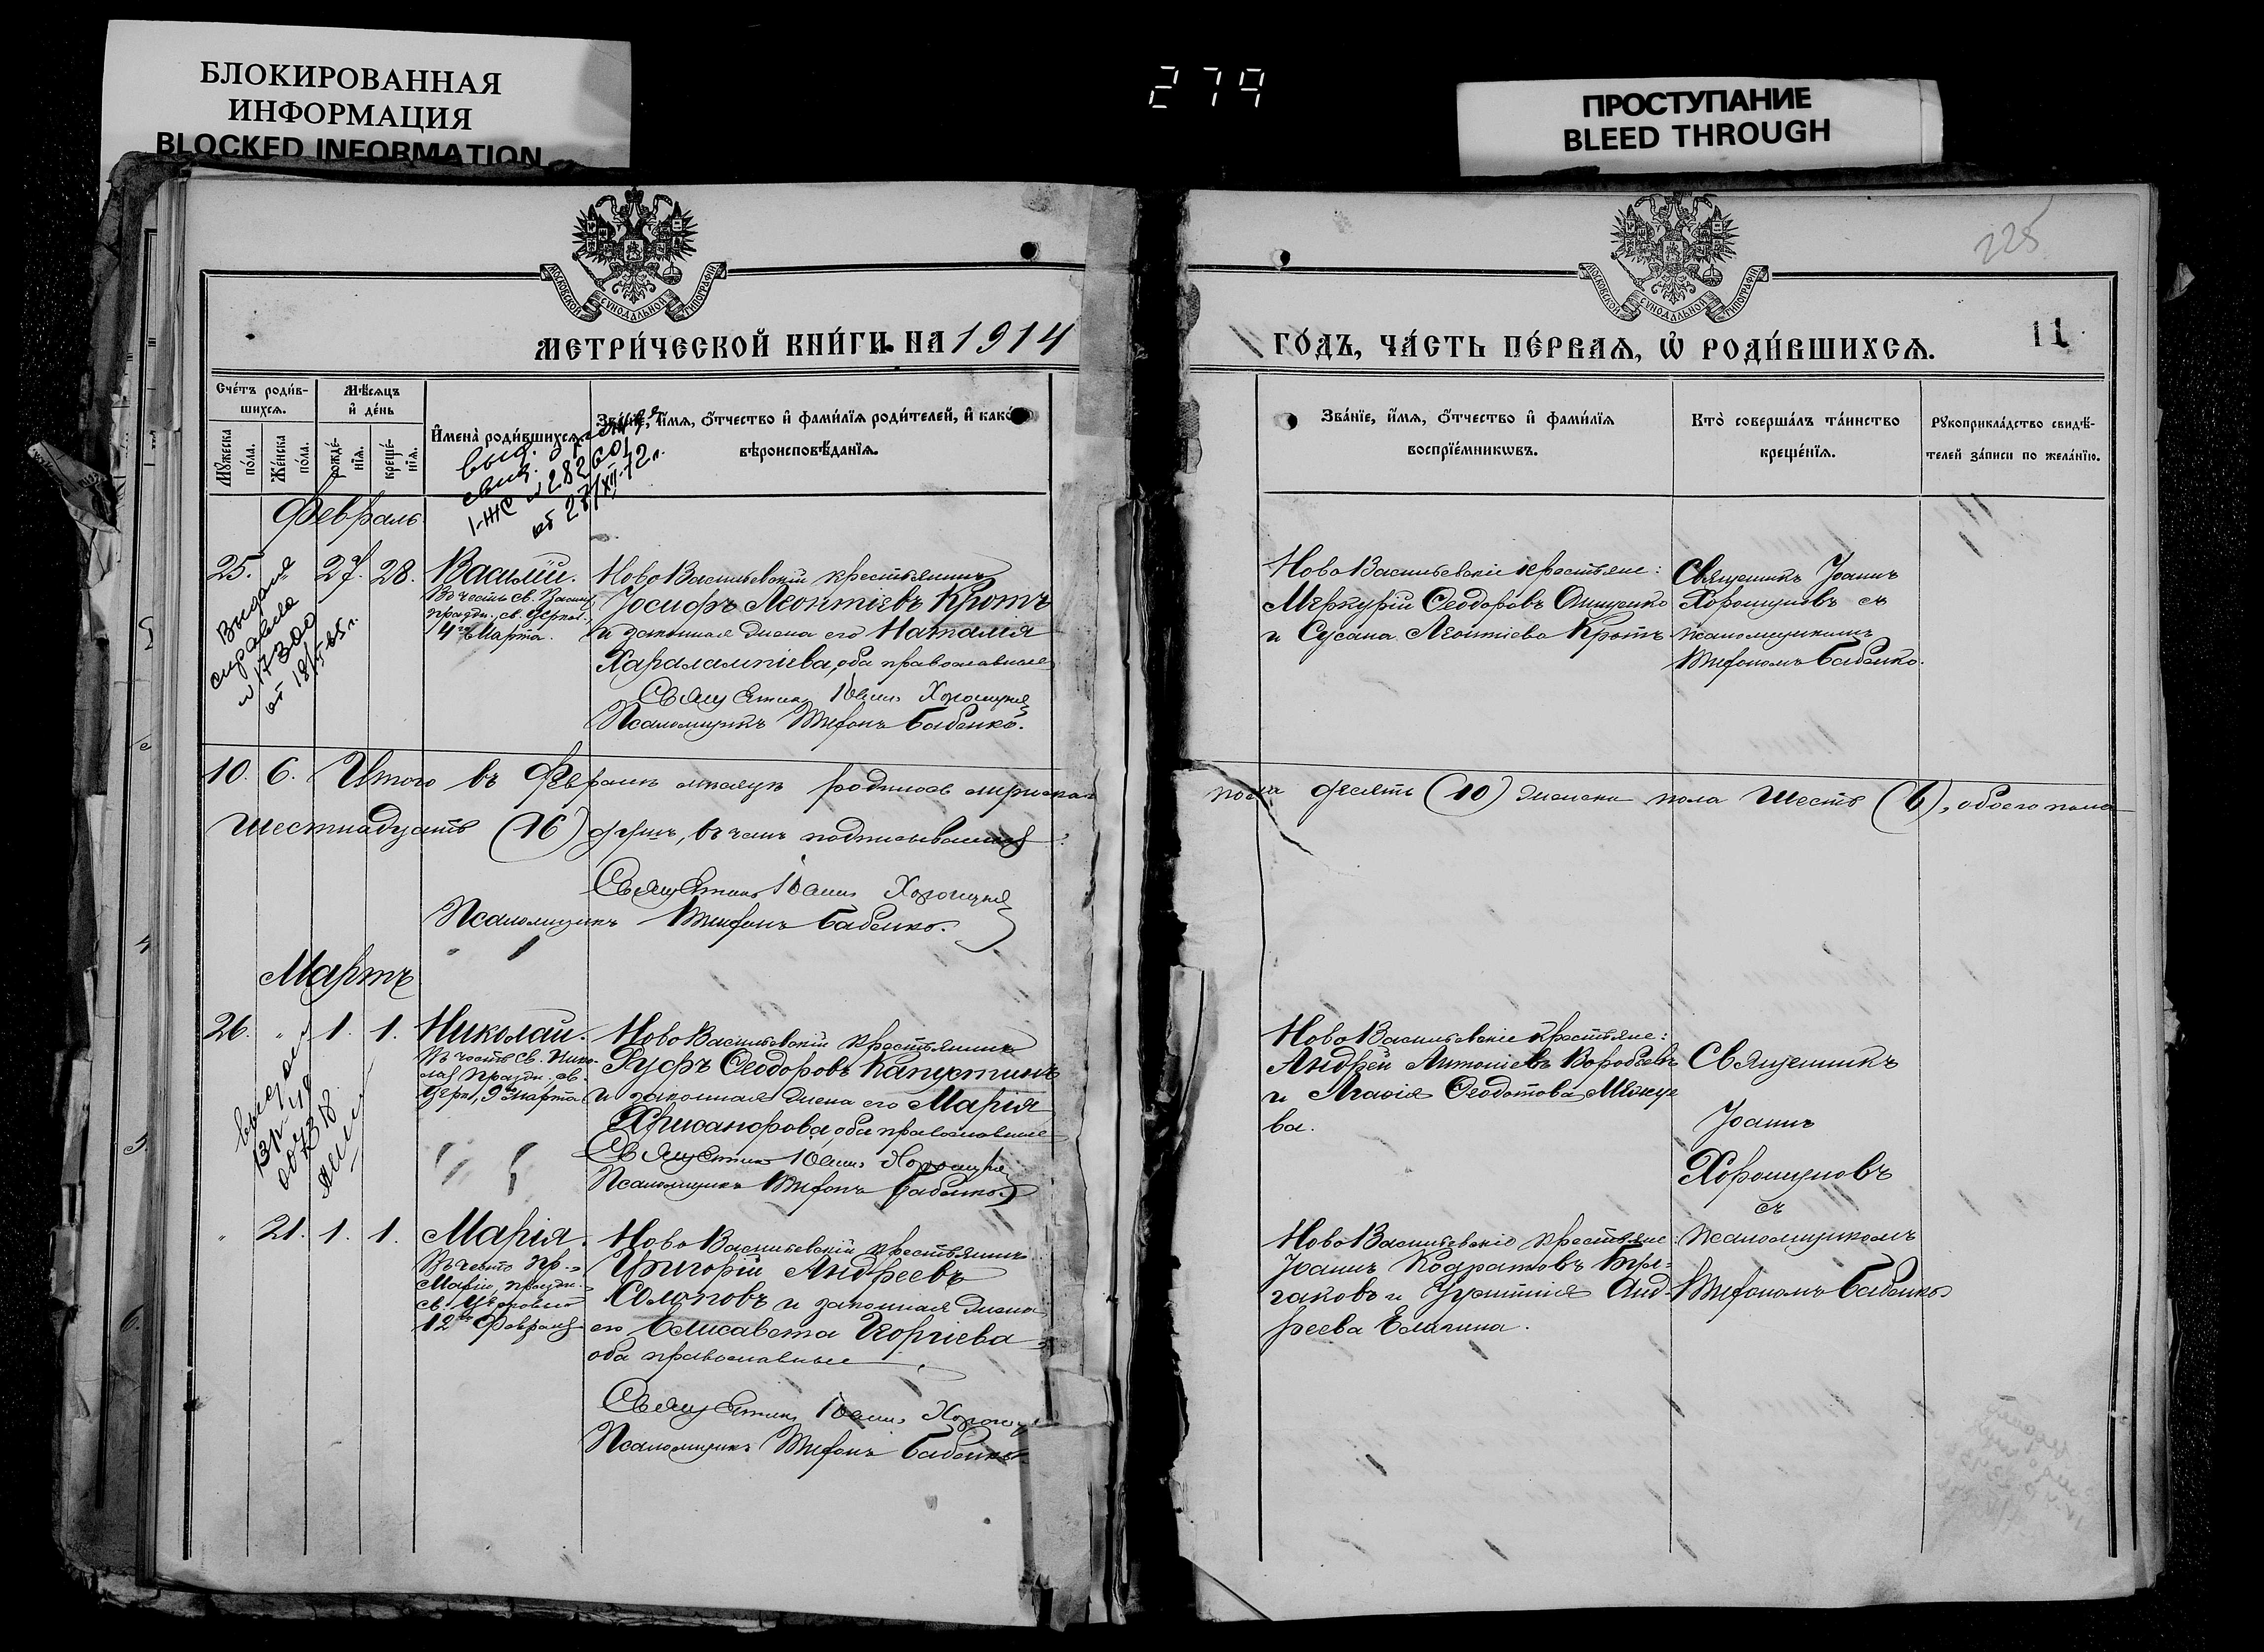 БЛОКИРОВАННАЯ
ИНФОРМАЦИЯ
BLOCKED INFORMATION
279
ПРОСТУПАНИЕ
BLEED THROUGH
225
МОСКОВСКОЙ СѴНОДАЛЬНОЙ ТИПОГРАФІИ
МОСКОВСКОЙ СѴНОДАЛЬНОЙ ТИПОГРАФІИ
МЕТРИ́ЧЕСКОЙ КНИ́ГИ НА 1914
ГО́ДЪ, ЧА́СТЬ ПЕ́РВАѦ, Ѡ҆ РОДИ́ВШИХСѦ.
11
Сче́тъ роди́в-
шихсѧ.
Мꙋ́жеска по́ла.
Же́нска по́ла.
Мѣ́сѧцъ
и҆ де́нь
рожде́-
нїѧ.
креще́-
нїѧ.
И҆мена̀ роди́вшихсѧ.
Зва́нїе, и҆́мѧ, ѻ҆́тчество и҆ фами́лїѧ роди́телей, и҆ како́
вѣроисповѣ́данїѧ.
Зва́нїе, и҆́мѧ, ѻ҆́тчество и҆ фами́лїѧ
воспрїе́мникѡвъ.
Кто̀ соверша́лъ та́инство
креще́нїѧ.
Рꙋкоприкла́дство свидѣ́-
телей за́писи по жела́нїю.
выд.
свид.
1-ЖС № 282601
от 27/XII-72 г.
Февраль
25. " 27. 28.
Выдана
справка
№ 17300
от 18/V-65 г.
Василій.
Въ честь св. Васил
праздн. св. Церков.
4го Марта.
Ново Васильевскій крестьянинъ
Іосифъ Леонтіевъ Кротъ
и законная жена его Наталія
Харалампіева, оба православные
Священникъ Іоаннъ Хорошунов
Псаломщикъ Тифонъ Бабенко.
Ново Васильевскіе крестьяне:
Меркурій Ѳеодоровъ Онищенко
и Сусана Леонтіева Кротъ
Священникъ Іоаннъ
Хорошуновъ съ
псаломщикомъ
Тифономъ Бабенко.
10. 6. Итого въ Февралѣ мѣсяцѣ родилось мужеска
пола десять (10) женска пола шесть (6), обоего пола
Шестнадцать (16) душъ, въ чемъ подписываемся:
Священникъ Іоаннъ Хорошунов
Псаломщикъ Тифонъ Бабенко.
Мартъ
26. " 1. 1.
Николай.
Въ честь св. Нико-
лая праздн. св.
Церк. 9 Марта
Ново Васильевскій крестьянинъ
Руфъ Ѳеодоровъ Капустинъ
и законная жена его Марія
оба православные
Священникъ Іоаннъ Хорошунов
Псаломщикъ Тифонъ Бабенко.
Ново Васильевскіе крестьяне:
Андрей Антоніевъ Воробьевъ
и Агаѳія Ѳеодотова
ва.
Священникъ
Іоаннъ
Хорошуновъ
съ
псаломщикомъ
Тифономъ Бабенко
" 21. 1. 1.
Марія.
Въ честь пр.
Маріи, праздн.
св. Церковію
12го Февраля
Ново Васильевскій крестьянинъ
Григорій Андреевъ
и законная жена
его Елисавета Георгіева
оба православные
Священникъ Іоаннъ Хорошу
Псаломщикъ Тифонъ Бабенко.
Ново Васильевскіе крестьяне:
Іоаннъ Кодратовъ Бир-
гаковъ и Анд-
реева Елагина.